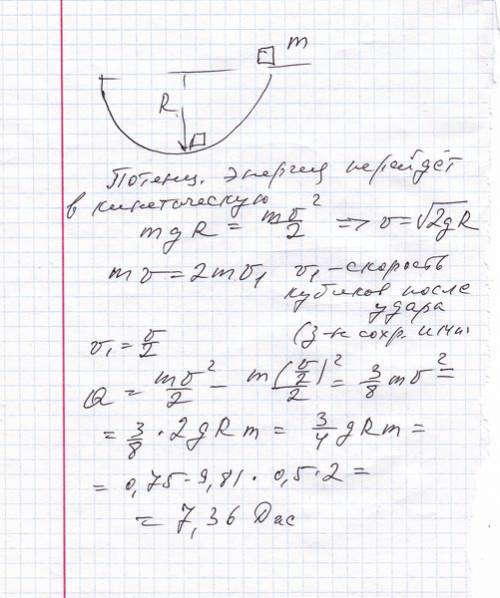 m
R
Потенц. энергия перейдёт
в кинетическую
mgR = mv²/2 => v = √2gR
mv = 2mv₁ v₁ - скорость
кубиков после
удара
v₁ = v/2 (з-н сохр. имп.
Q = mv²/2 - m(v/2)²/2 = 3/8 mv² =
= 3/8 · 2gRm = 3/4 gRm =
= 0,75 · 9,81 · 0,5 · 2 =
= 7,36 Дж